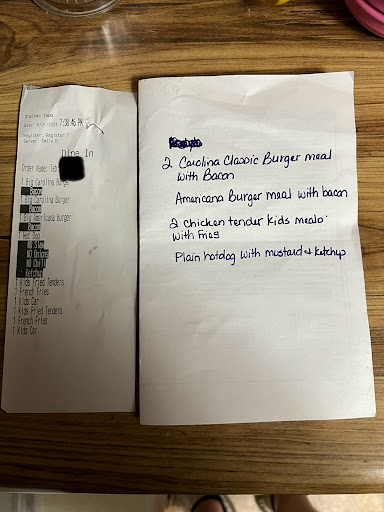 Station: Expo
7:38:46 PM
Register: Register 1
Dine In
Order Name: Tab
1 Big Carolina Burger
Bacon
1 Big Carolina Burger
Bacon
1 Big Americana Burger
Bacon
1 Hot Dog
NO Slaw
NO Onions
NO Chili
Ketchup
1 Kids Fried Tenders
1 French Fries
1 Kids Car
1 Kids Fried Tenders
1 French Fries
1 Kids Car
2 Carolina Classic Burger meal
with Bacon
Americana Burger meal with bacon
2 chicken tender kids meals
with Fries
Plain hotdog with mustard & ketchup